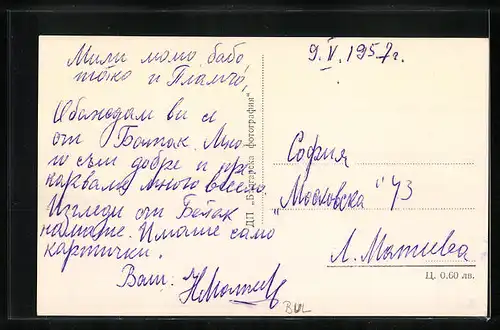 Мили мамо, бабо
тατко и Пламчо,
Обаждам ви се
от Батак. Мно-
го съм добре и пре-
карвам много весело.
Изгледи от Батак
нямаше. Имаше само
картички.
Ваш:
ДП „Българска фотография"
9. V. 1957 г.
София
„Московска" 43
Л. Матева
Ц. 0.60 лв.
BUL